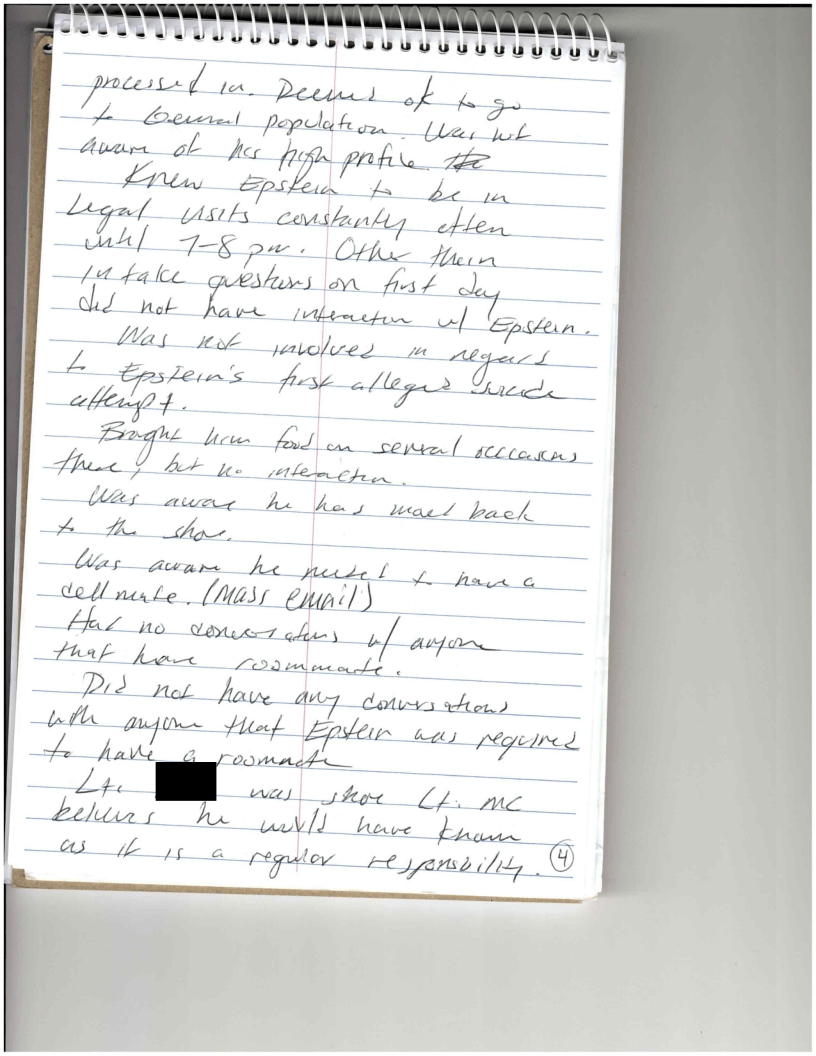 processed in. Deemed ok to go
to General population. Was not
aware of his high profile.
Knew Epstein to be in
Legal visits constantly often
until 7-8 pm. Other then
intake questions on first day
did not have interaction w/ Epstein.
Was not involved in regards
to Epstein's first alleged suicide
attempt.
Brought him food on several occasions
there, but no interaction.
Was aware he was moved back
to the shoe.
Was aware he needed to have a
cellmate. (Mass email)
Had no conversations w/ anyone
that have roommate.
Did not have any conversations
with anyone that Epstein was required
to have a roommate
Lt. was shoe Lt. MC
believes he would have known
as it is a regular responsibility. 4